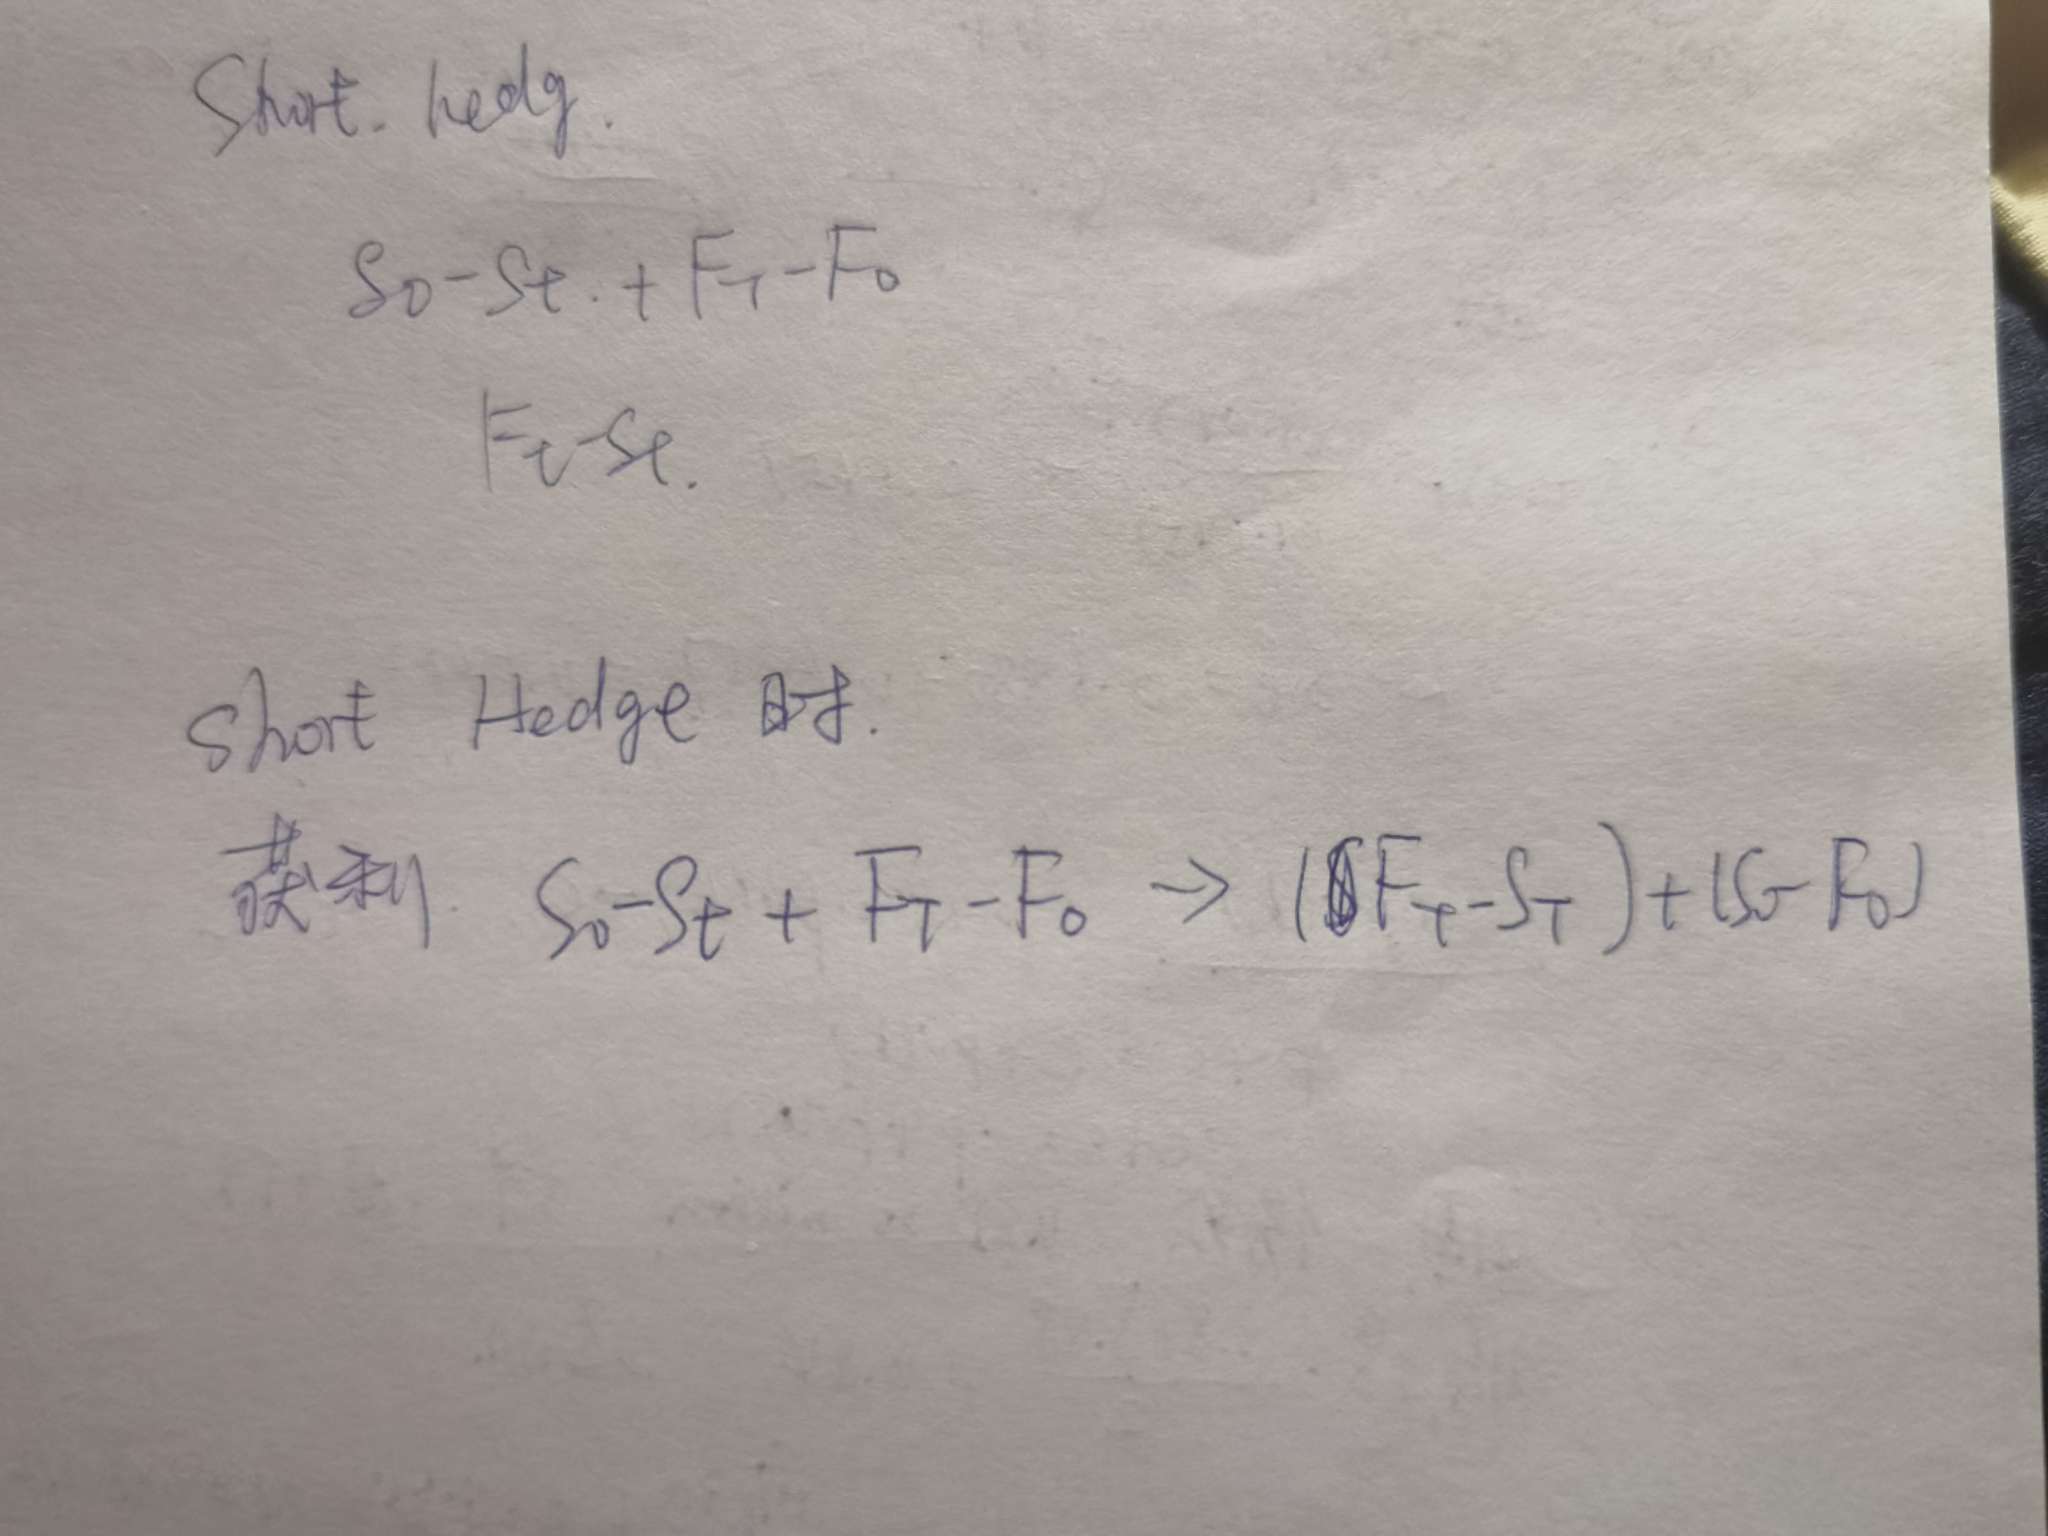 Short. hedg.
S0-St. + FT-F0
Ft-St.
Short Hedge 时.
获利. S0-St + FT-F0 → (FT-ST)+(S0-F0)